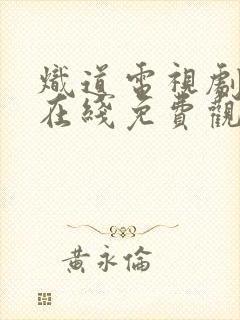 熾道電視劇
在綫免費觀
黃永倫